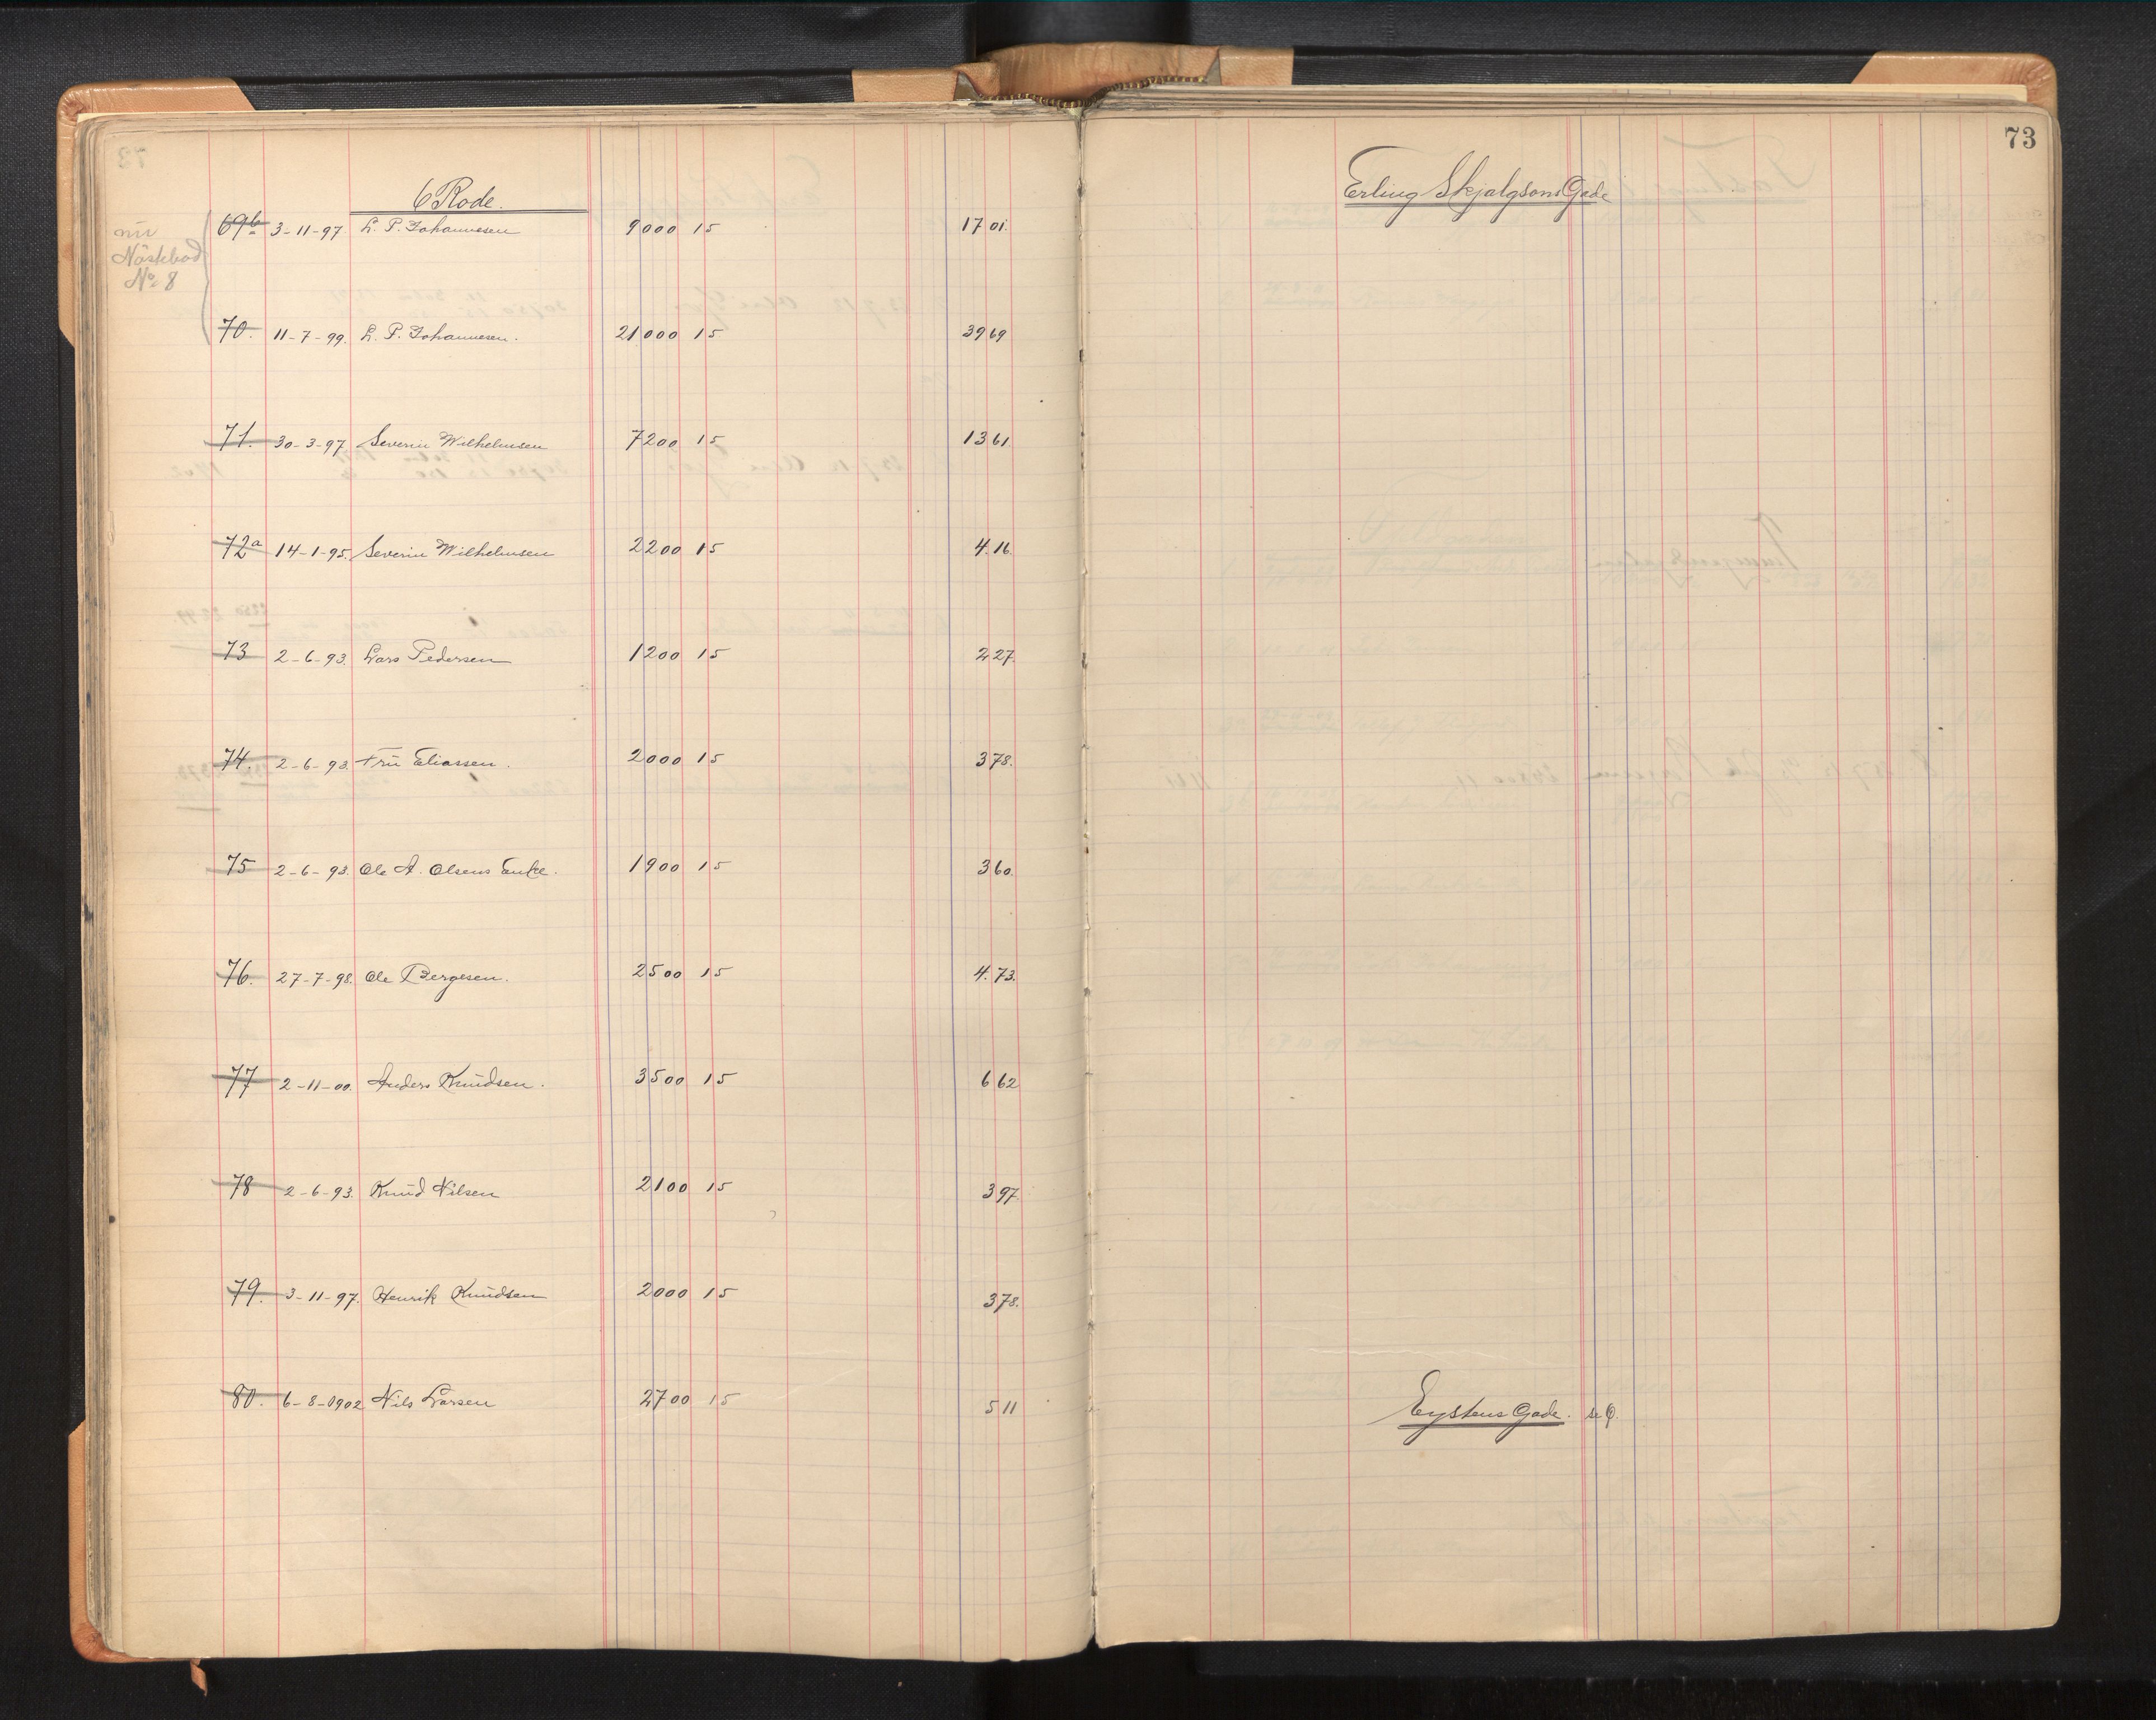 6 Rode.
69b 3-11-97. L. P. Johannesen 9000 15 1701.
nu
Nöstebod
No 8
70. 11-7-99. L. P. Johannesen. 21000 15 3969
71. 30-3-97 Severin Wilhelmsen 7200 15 1361
72a 14-1-95. Severin Wilhelmsen 2200 15 4.16.
73 2-6-93. Lars Pedersen 1200 15 227.
74. 2-6-93. Frü Eliassen. 2000 15 378.
75 2-6-93. Ole A. Olsens Enke. 1900 15 360.
76. 27-7-98. Ole Bergesen. 2500 15 4.73.
77 2-11-00. Anders Knüdsen. 3500 15 662
78 2-6-93. Knüd Nilsen 2100 15 397
79. 3-11-97. Henrik Knüdsen 2000 15 378.
80. 6-8-0902 Nils Larsen 2700 15 511
73
Erling Skjalgsons Gade
Eystens Gade. se